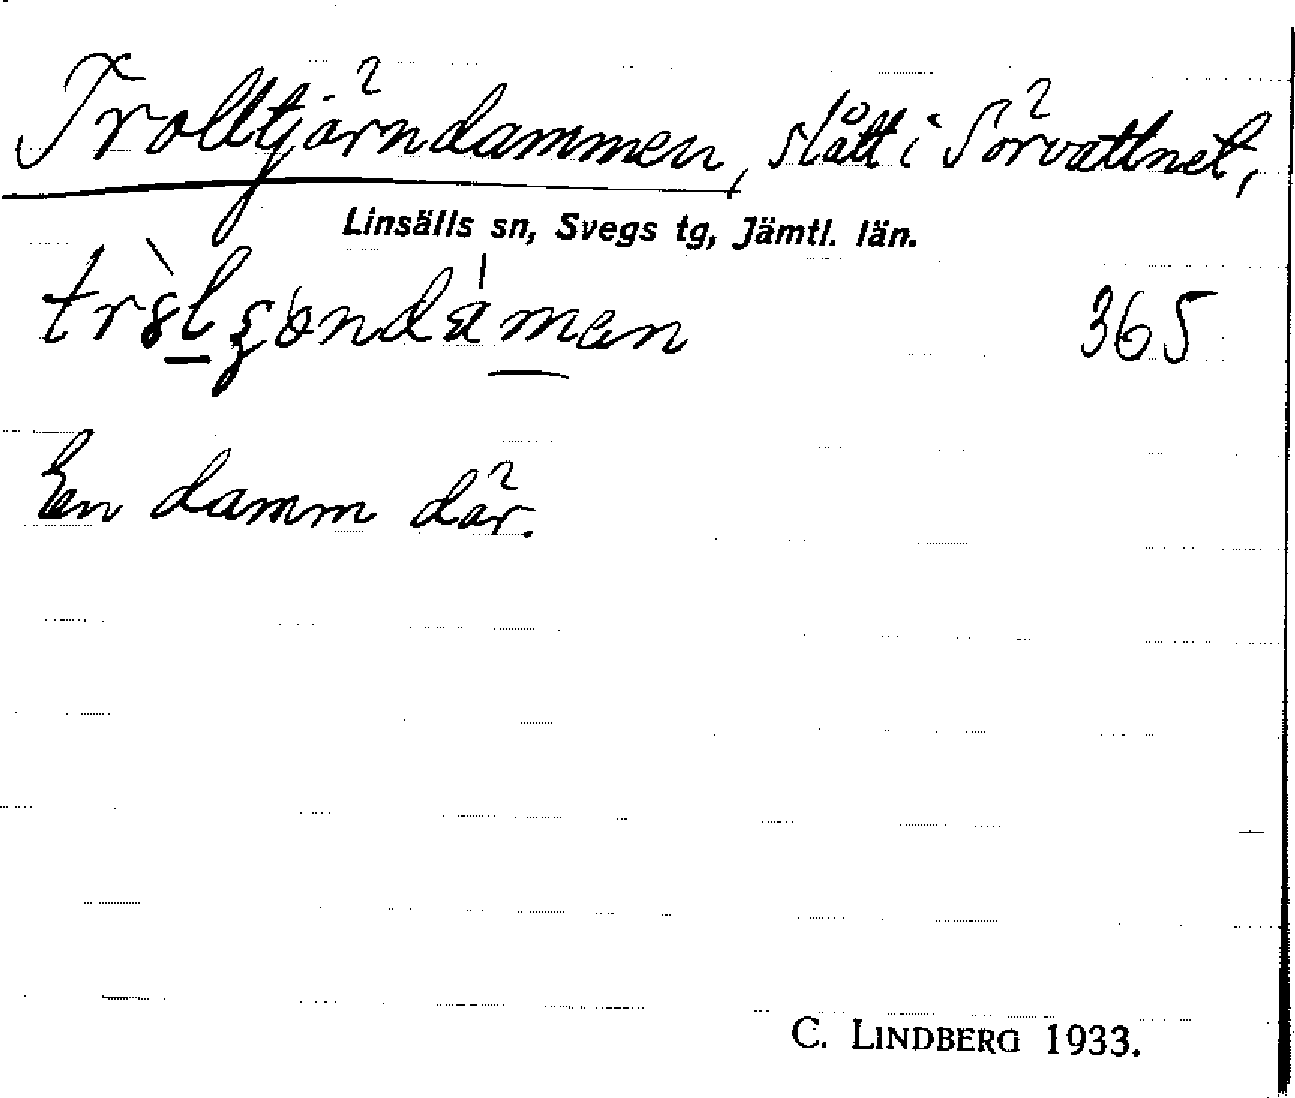 Trolltjärndammen, slått i Sörvattnet,
Linsälls sn, Svegs tg, Jämtl. län.
365
En damm där.
C. LINDBERG 1933.